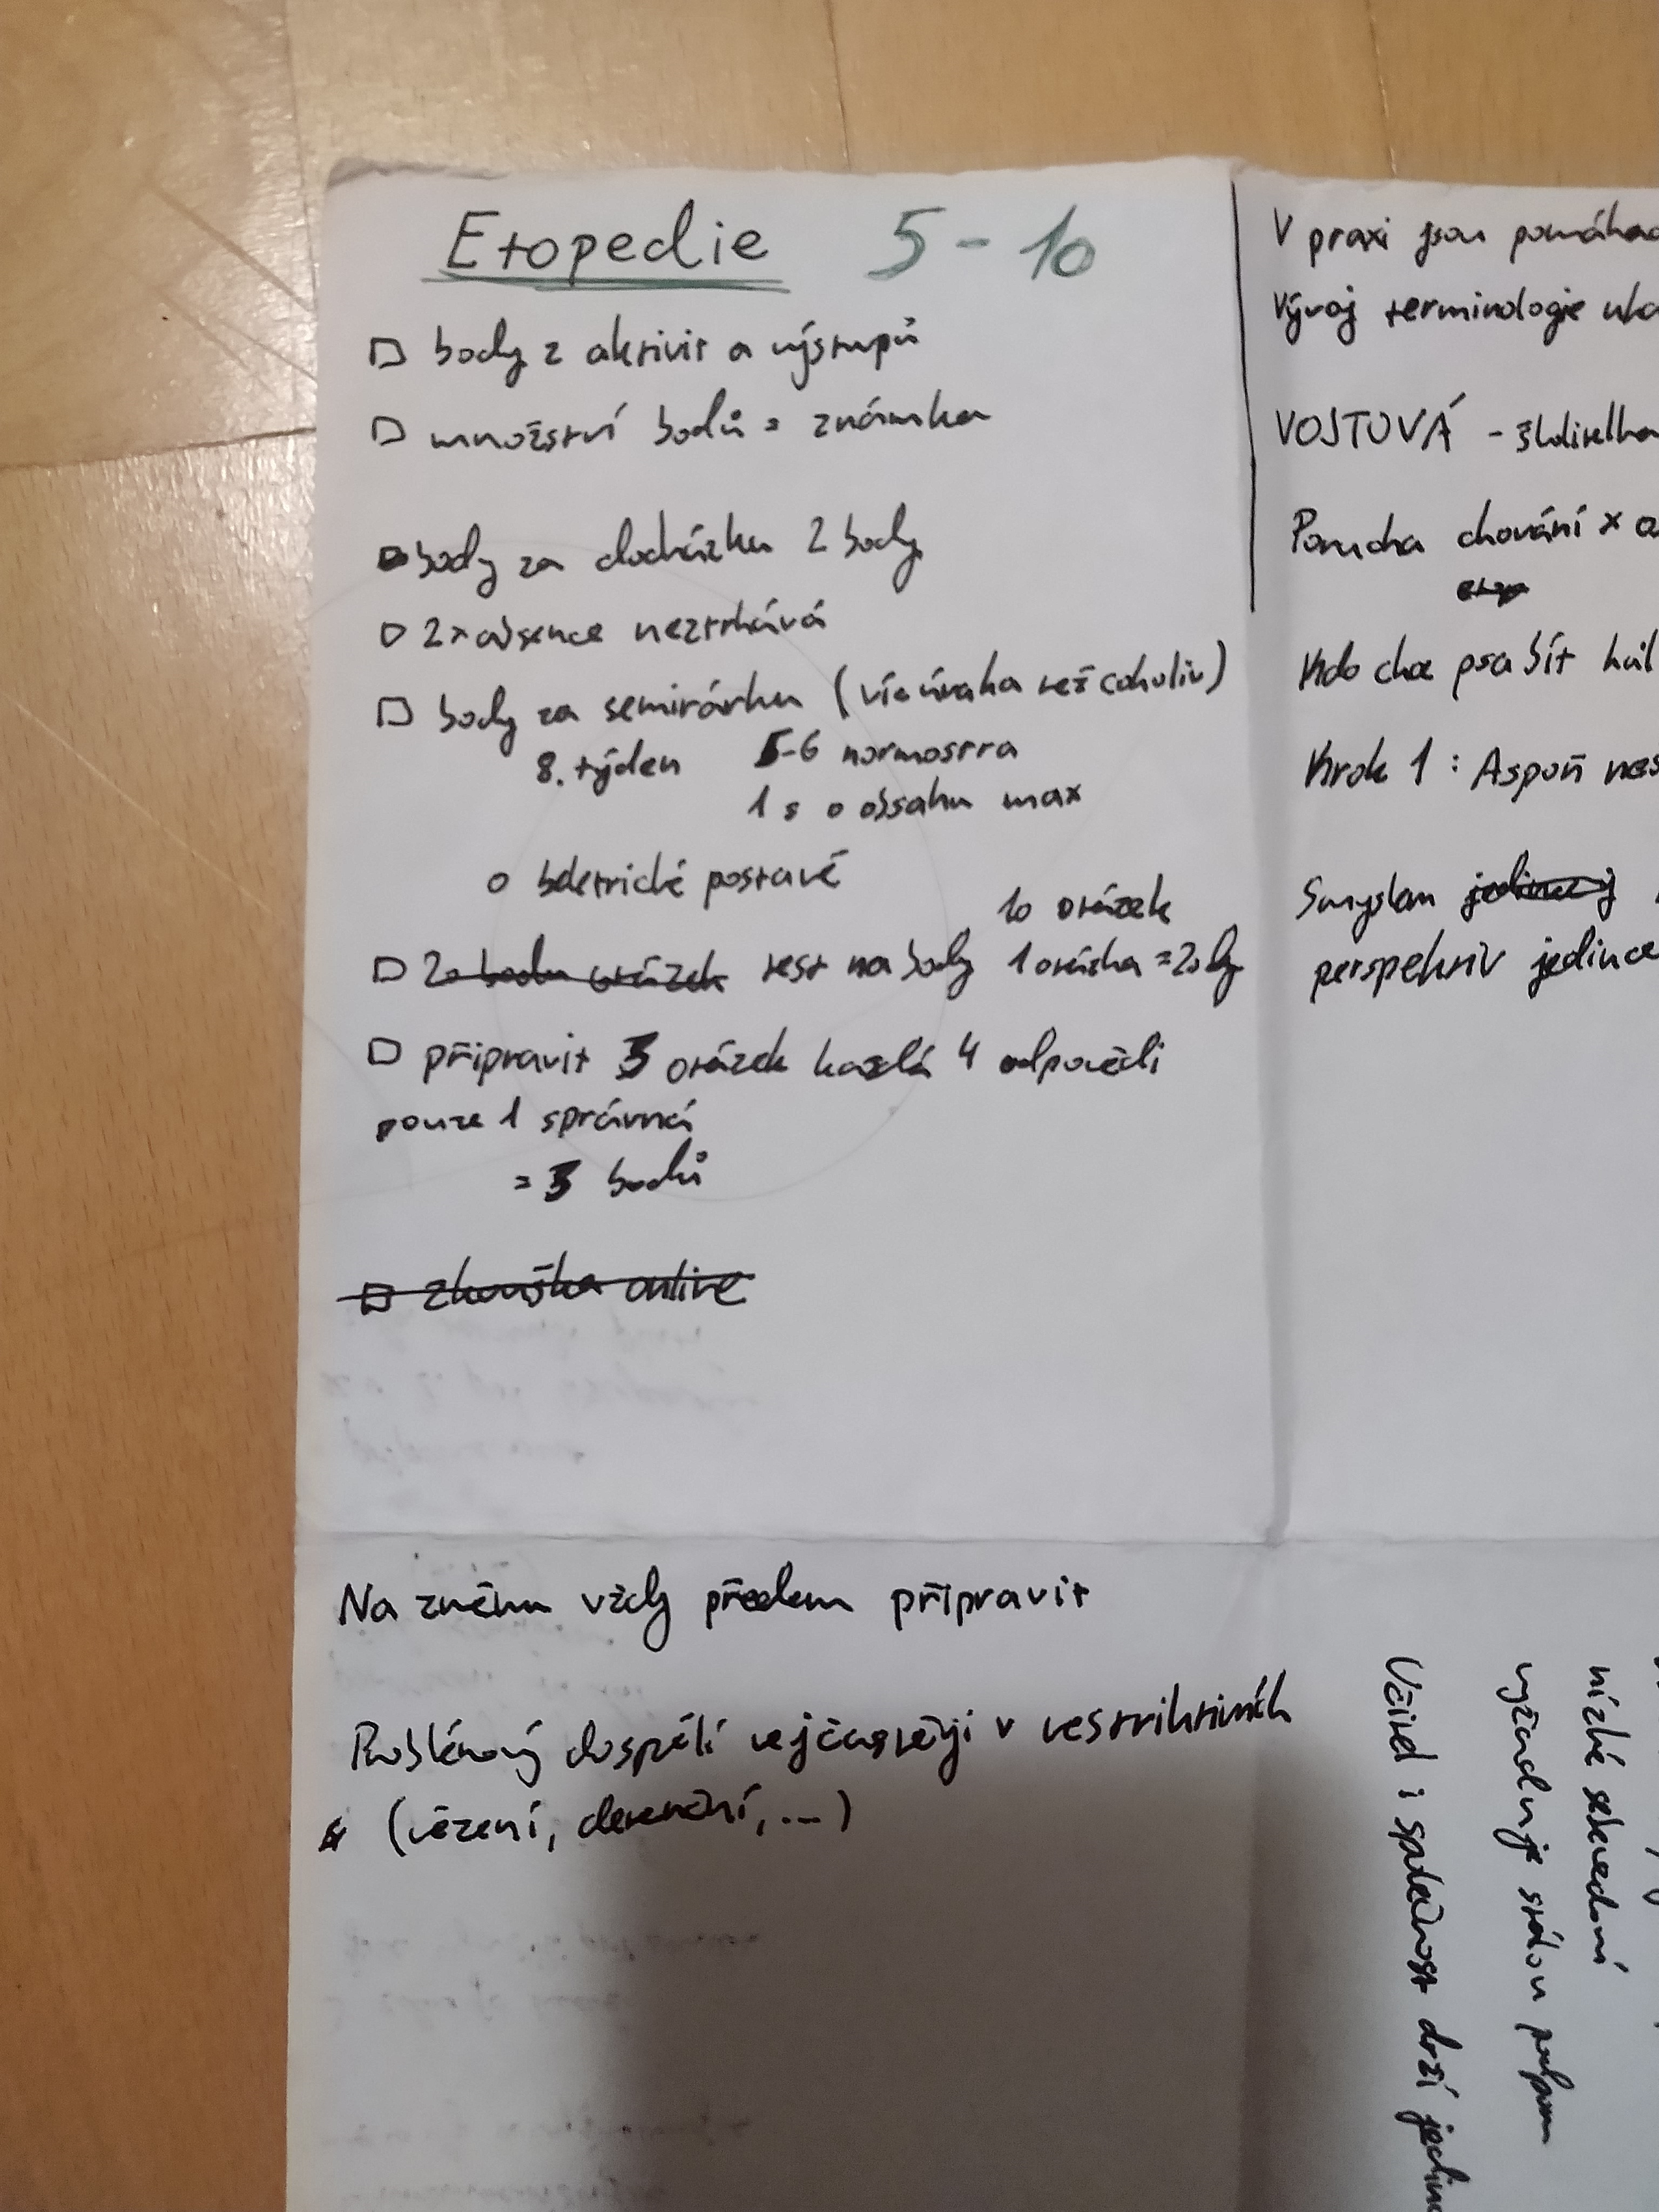 Etopedie 5-10
body z aktivit a výstupů
množství bodů = známka
body za docházku 2 body
2x absence neztrhává
body za seminárku (víc úvaha než cokoliv)
8. týden 5-6 normostra
1 s o obsahu max
o beletrické postavě
10 otázek
test na body 1 otázka = 2 body
připravit otázek každá 4 odpovědi
pouze 1 správná
= bodů
zkouška online
Na změnu vždy předem připravit
Problémový dospělí nejčastěji v restriktivních
(vězení, detenční, ...)
V praxi jsou
Vývoj terminologie
VOJTOVÁ -
Porucha chování x
Kdo chce psa bít
Krok 1 : Aspoň
Smyslem
perspektiv jedince
nízké sebevědomí
vyžaduje stálou
Učitel i společnost drží